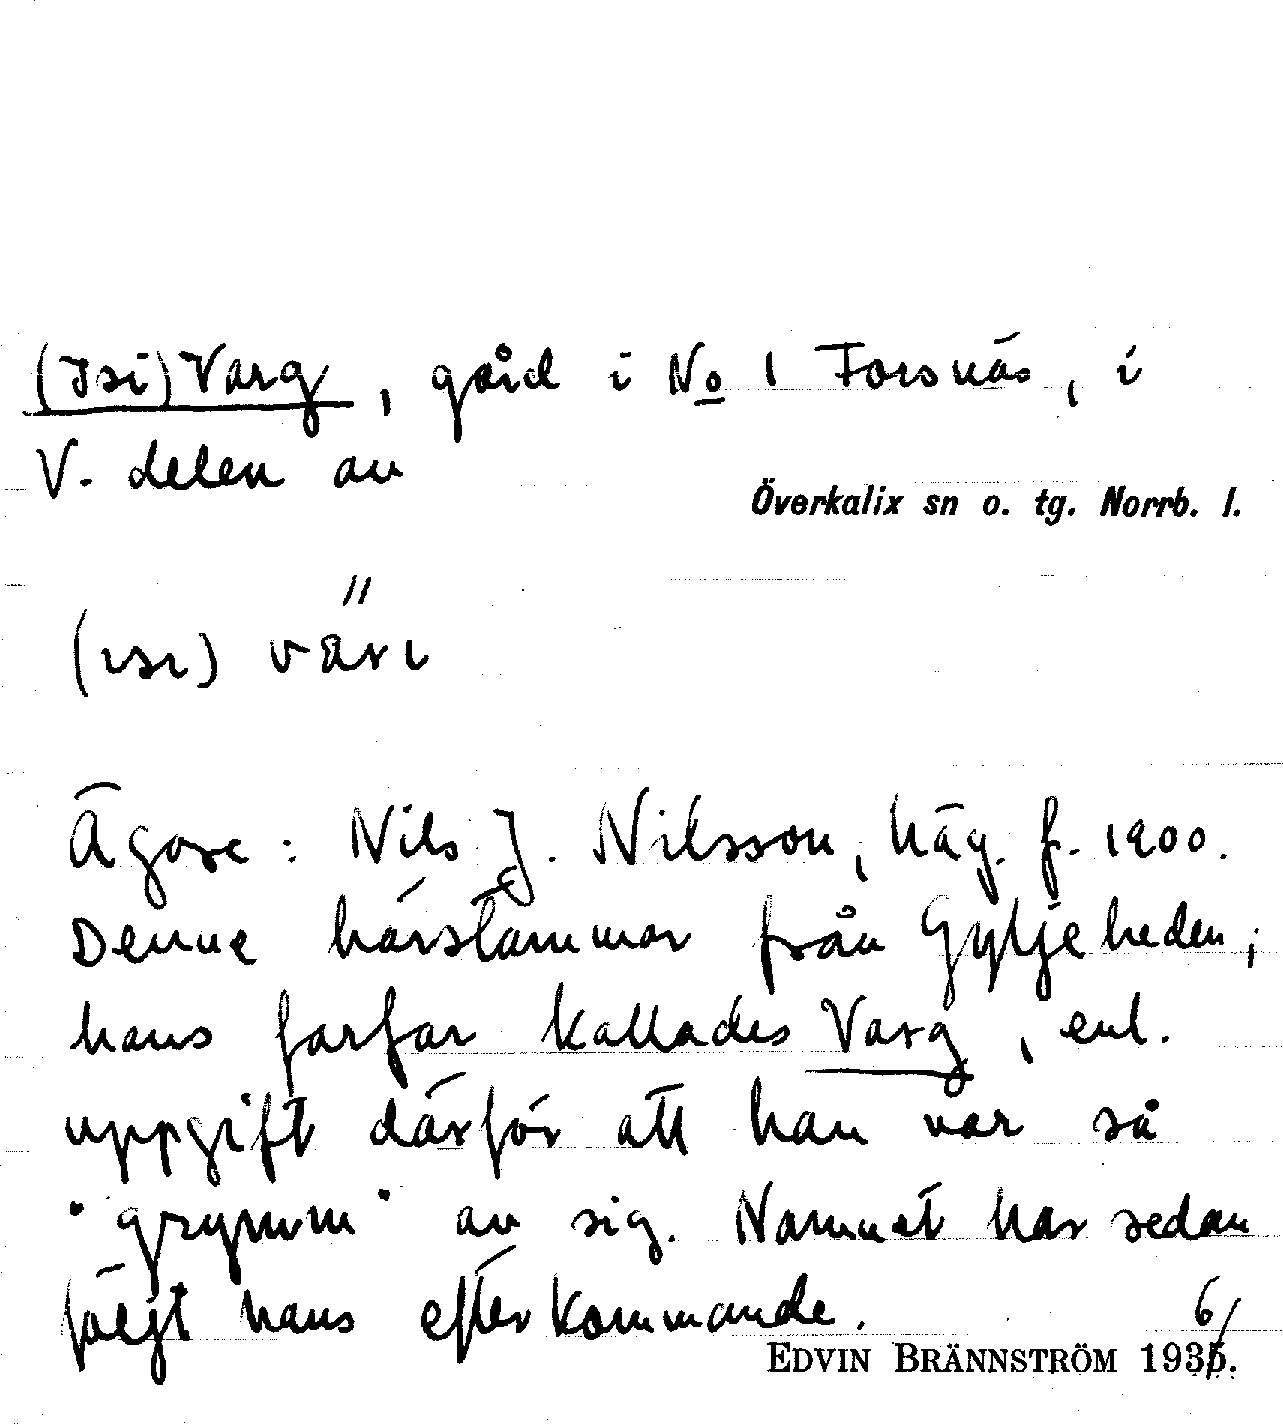 (Isi)Varg, gård i No 1 Forsnäs, i
V. delen av
Överkalix sn o. tg. Norrb. l.
(ısı) värı
Ägare: Nils J. Nilsson, häg. f. 1900.
Denne härstammar från Gyljeheden;
hans farfar kallades Varg, enl.
uppgift därför att han var så
"grymm" av sig. Namnet har sedan
följt hans efterkommande.
EDVIN BRÄNNSTRÖM 1936.